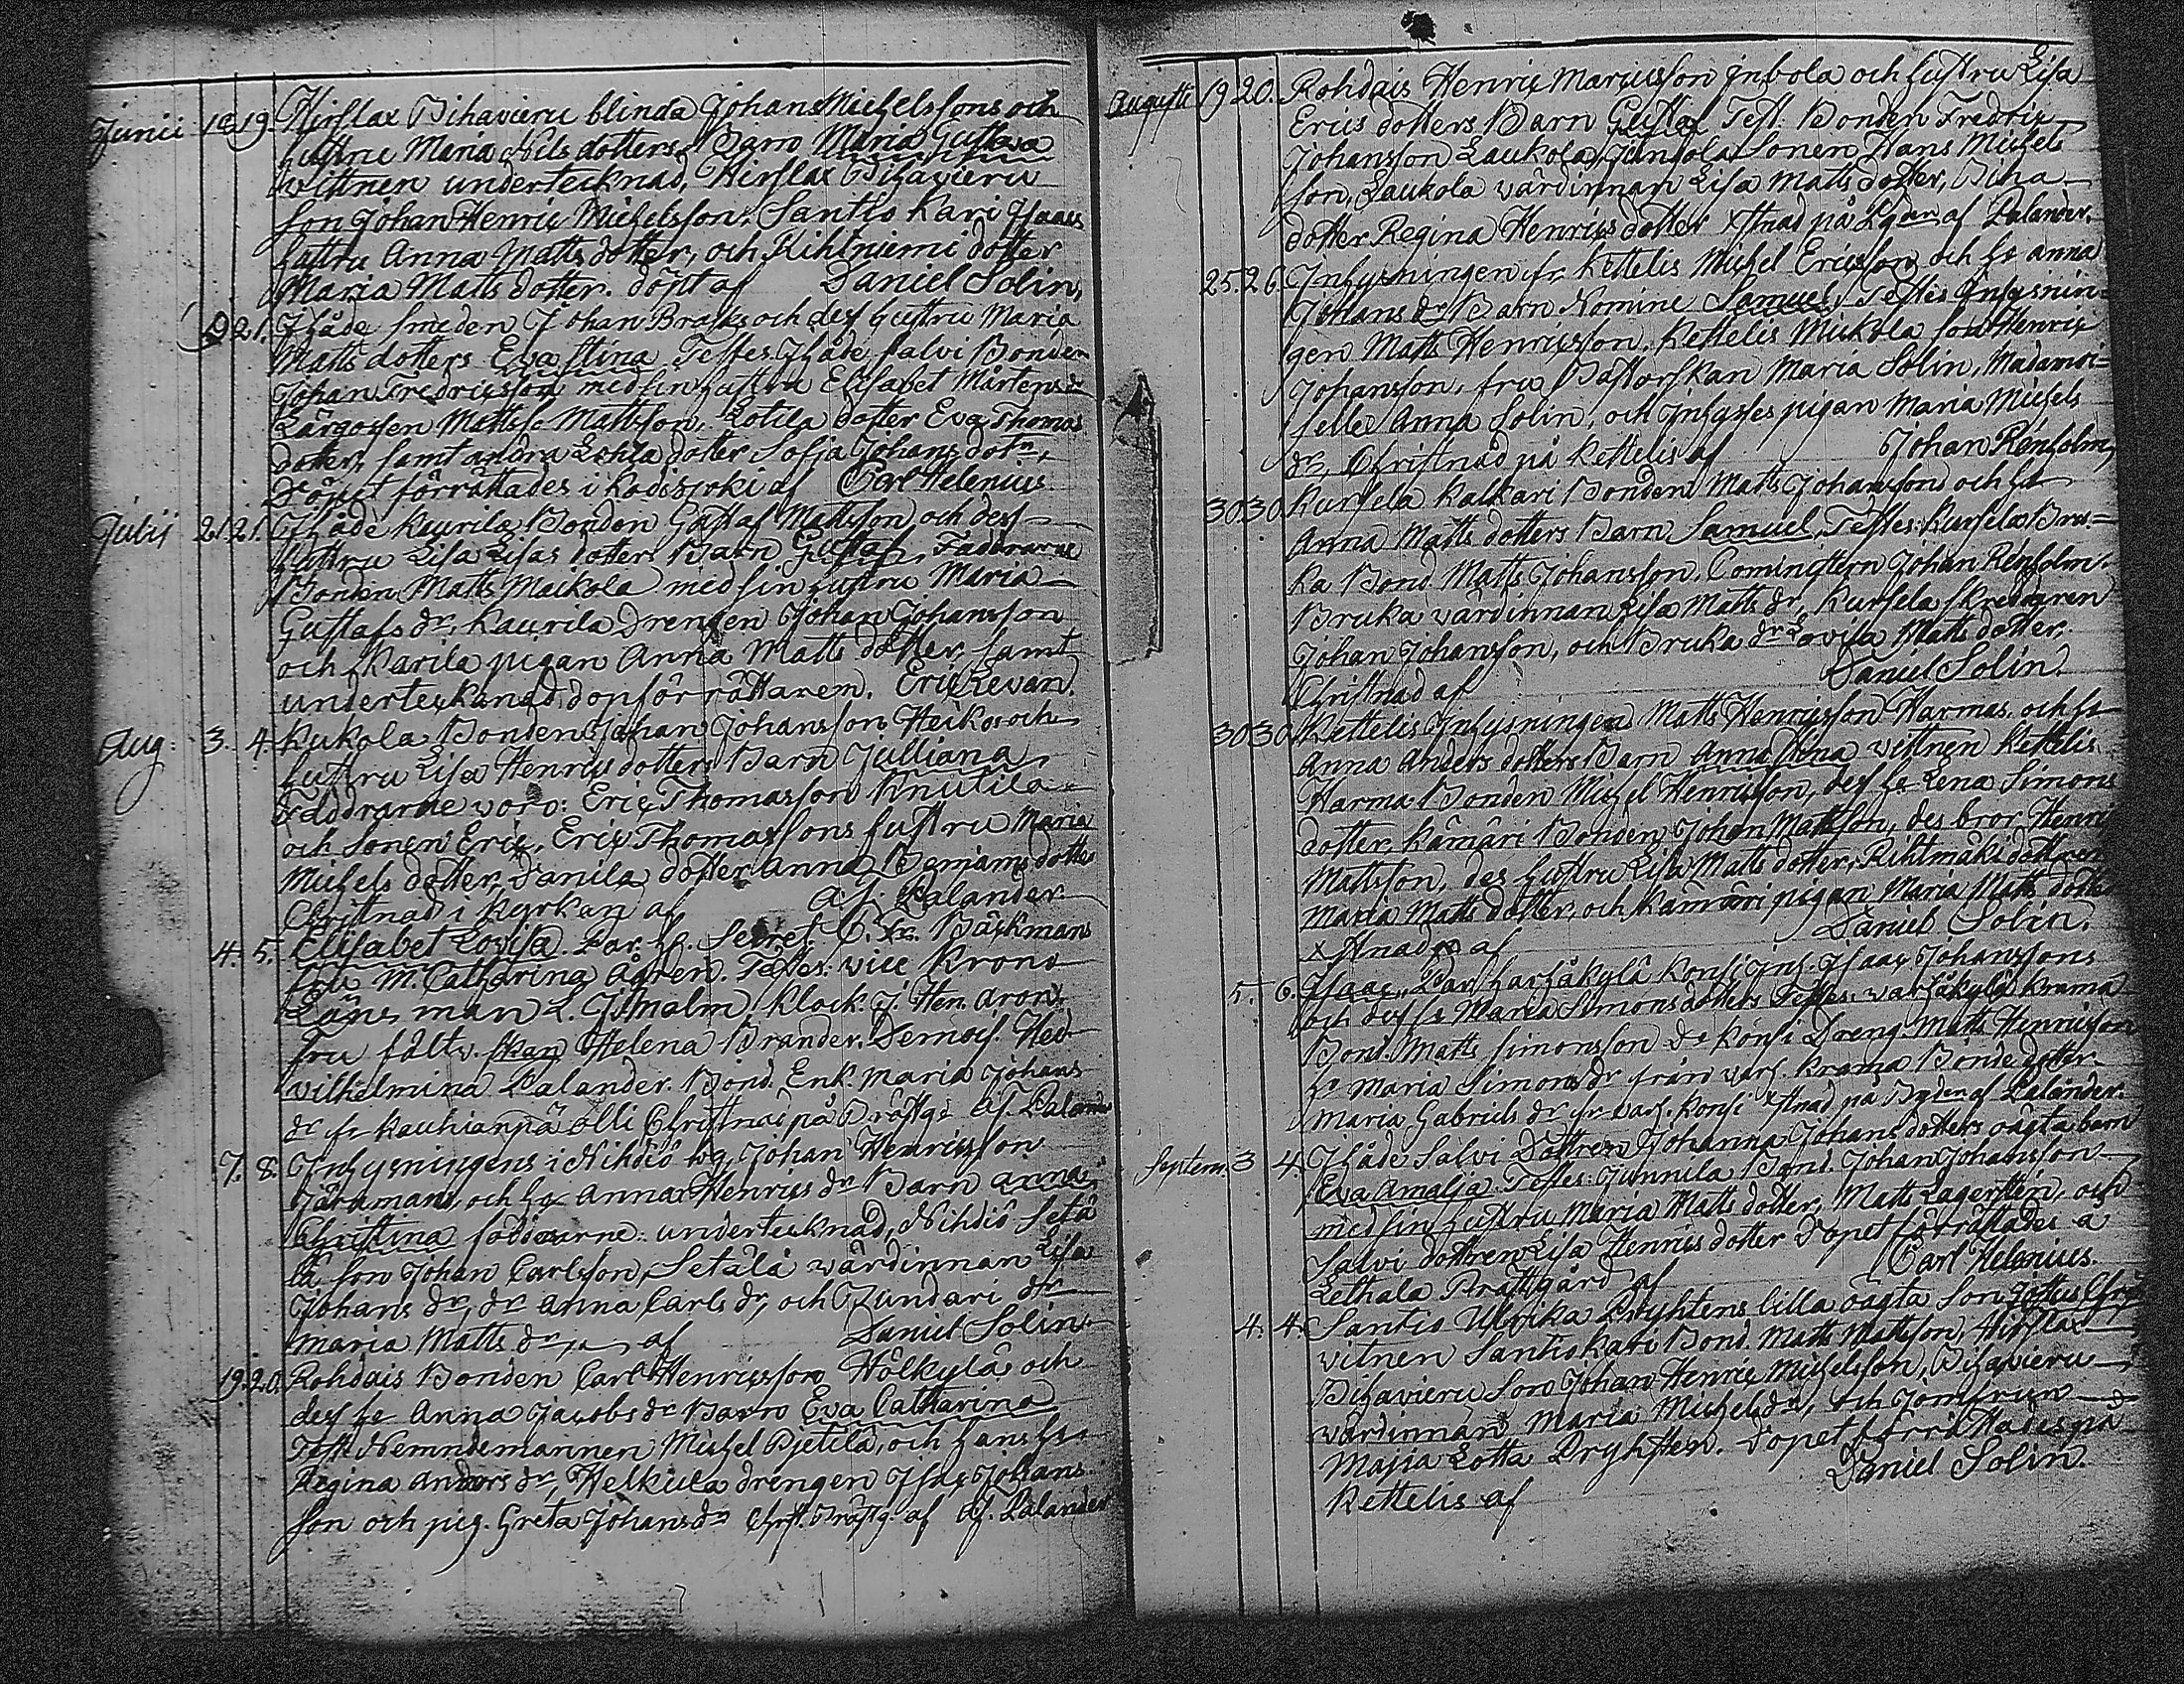 Junii 18 19. Hirslax Bihavieru blinda Johan Michelssons och
hustru Maria Nils dotters Barn Maria Gustava
vittnen undertecknad, Hirslax Bihavieru
son Johan Henric Michelsson, Santio Kari Isaacs
hustru Anna Matts dotter, och Rihtniemi dotter
Maria Matts dotter. döpt af Daniel Solin,
21. Ihåde smeden Johan Brask och dess hustru Maria
Matts dotters Eva Stina Testes Ihåde Salvi Bonden
Johan Fredricsson med sin hustru Elisabet Mårtens dr
Mattsson, Lotila dotter Eva Thomas
dotter, samt andra dotter Sofia Johans dotr,
Döpet förrättades i af Carl Helenius
Julij 21. 21. Ihåde Kaurila Bonden Gustaf Mattsson och dess
hustru Lisa Lisas dotter Barn Gustaf, Faddrarne
Bonden Matts Maikola med sin hustru Maria
Gustafs dr, Kaurila Drengen Johan Johansson
och Karila pigan Anna Matts dotter samt
underteckenad dopförrättaren. Eric Levan.
Aug: 3. 4. Kukola Bonden Johan Johansson Heikos och
hustru Lisa Henrics dotters Barn Julliana
Faddrarne voro: Eric Thomasson Knutila
och Sonen Eric, Eric Thomassons hustru Maria
Michels dotter, Danila dotter Anna Benjams dotter
Christnad i Kyrkan af Aj. Palander
4. 5. Elisabet Lovisa. Par. Hr. Secret. C. Fr. Bäckmans
fru M. Catharina Ågren. Testes: vice Krono
Läns man L. J. Malm, Klock. J. Hen. Aron.
fru fältv. skan Helena Brander. Demois. Hed
vilhelmina Palander. Bond. Enk. Maria Johans
dr fr Kauhianpä Olli Christnad på Prästg: Aj. Palander
7. 8. Inhysningens i Nihdiö by, Johan Henricsson
Järnmans, och hu Anna Henrics dr Barn Anna
Christina faddrarne: undertecknad, Nihdiö Setä
lä son Johan Carlsson, Setälä wärdinnan Lisa
Johans dr, dr Anna Carls dr, och Jundari dr
Maria Matts dr af Daniel Solin
19. 20. Rohdais Bonden Carl Henricsson Hölkylä och
dess hu Anna Jacobs dr Barn Eva Catharina
Test: Nemndemannen Michel Pjetilä, och hans hu
Regina Anders dr, Helkiula drengen Isac Johans
son och pig. Greta Johans dr Christ. Prästg. af Aj. Palander
Augusti 19 20. Rohdais Henric Maricusson Inbola och hustru Lisa
Erics dotters Barn Gustaf Test: Bonden Fredric
Johansson Laukola, Junsola Sonen Hans Michels
son, Laukola värdinnan Lisa Matts dotter, Piha
dotter Regina Henrics dotter Xstnad på af Palander.
25. 26. Inhysningen fr. Kettelis Michel Ericsson och hu Anna
Johans dr Barn Nomine Samuel, Testes Inhysnin=
gen Matts Henricsson, Kettelis Mickola son Henric
Johansson, fru Pastorskan Maria Solin, Madamoi=
selle Anna Solin, och Inhyses pigan Maria Michels
dr, Christnad på Kettelis af Johan Renholm,
30 30. Kursela Kalkari Bonden Matts Johansson och hu
Anna Matts dotters Barn Samuel, Testes: Kursela Bru=
ka Bond. Matts Johansson, Cominist:ern Johan Renholm,
Bruka värdinnan Lisa Matts dr, Kursela skreddaren
Johan Johansson, och Bruka dr Lovisa Matts dotter.
Christnad af Daniel Solin.
30 30. Kettelis Inhysningen Matts Henricsson Harmas, och hu
Anna Anders dotters Barn Anna Stina vittnen Kettelis
Harma Bonden Michel Henricsson, des hu Lena Simons
dotter, Kämäri Bonden Johan Mattsson, des bror Henric
Mattsson, des hustru Lisa Matts dotter, Rihtmäki dottren
Maria Matts dotter, och Kämäri pigan Maria Matts dotter
xstnad af Daniel Solin.
5. 6. Isaac. Par. harjåkylä Konsi Inh. Isaac Johanssons
och dess hu Maria Simonsdotters Testes: varjåkylä Krama
Bond. Matts Simonsson dr Konsi Dreng Matts Henricsson
hu Maria Simons dr från varj. Krama Bonde dotter
Maria Gabriels dr fr varj. Konsi Xstnad på Byden af Palander.
Septem. 3 4. Ihåde Salvi Dottren Johanna Johans dotters oägta barn
Eva Amalja Testes: Junnila Bond. Johan Johansson
med sin hustru Maria Matts dotter, Matts Lagerstén, och
Salvi dottren Lisa Henrics dotter Dopet förrättades a
Lethala Prästgård af Carl Helenius.
4. 4. Santio Ulrika Dryhtens lilla oägta Son Justus
vitnen Santio Kari Bond. Matts Mattsson, Hirslax
Bihavieru Son Johan Henric Michelsson, Bihavieru
wärdinnan Maria Michels dr, och Jomfrun
Majia Lotta Dryhten. Dopet förrättades på
Kettelis af Daniel Solin.